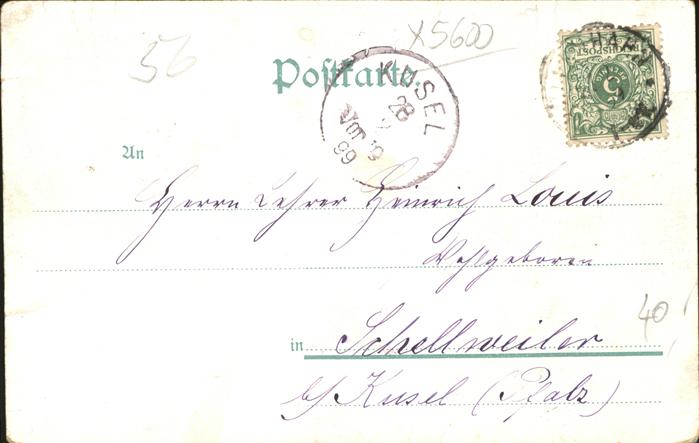 56
X5600
Postkarte.
KUSEL
28
Vor 9
99
HAHN
REICHSPOST
5
An
Herrn Lehrer Heinrich Louis
Wohlgeboren
40
in Schellweiler
b/ Kusel (Pfalz)